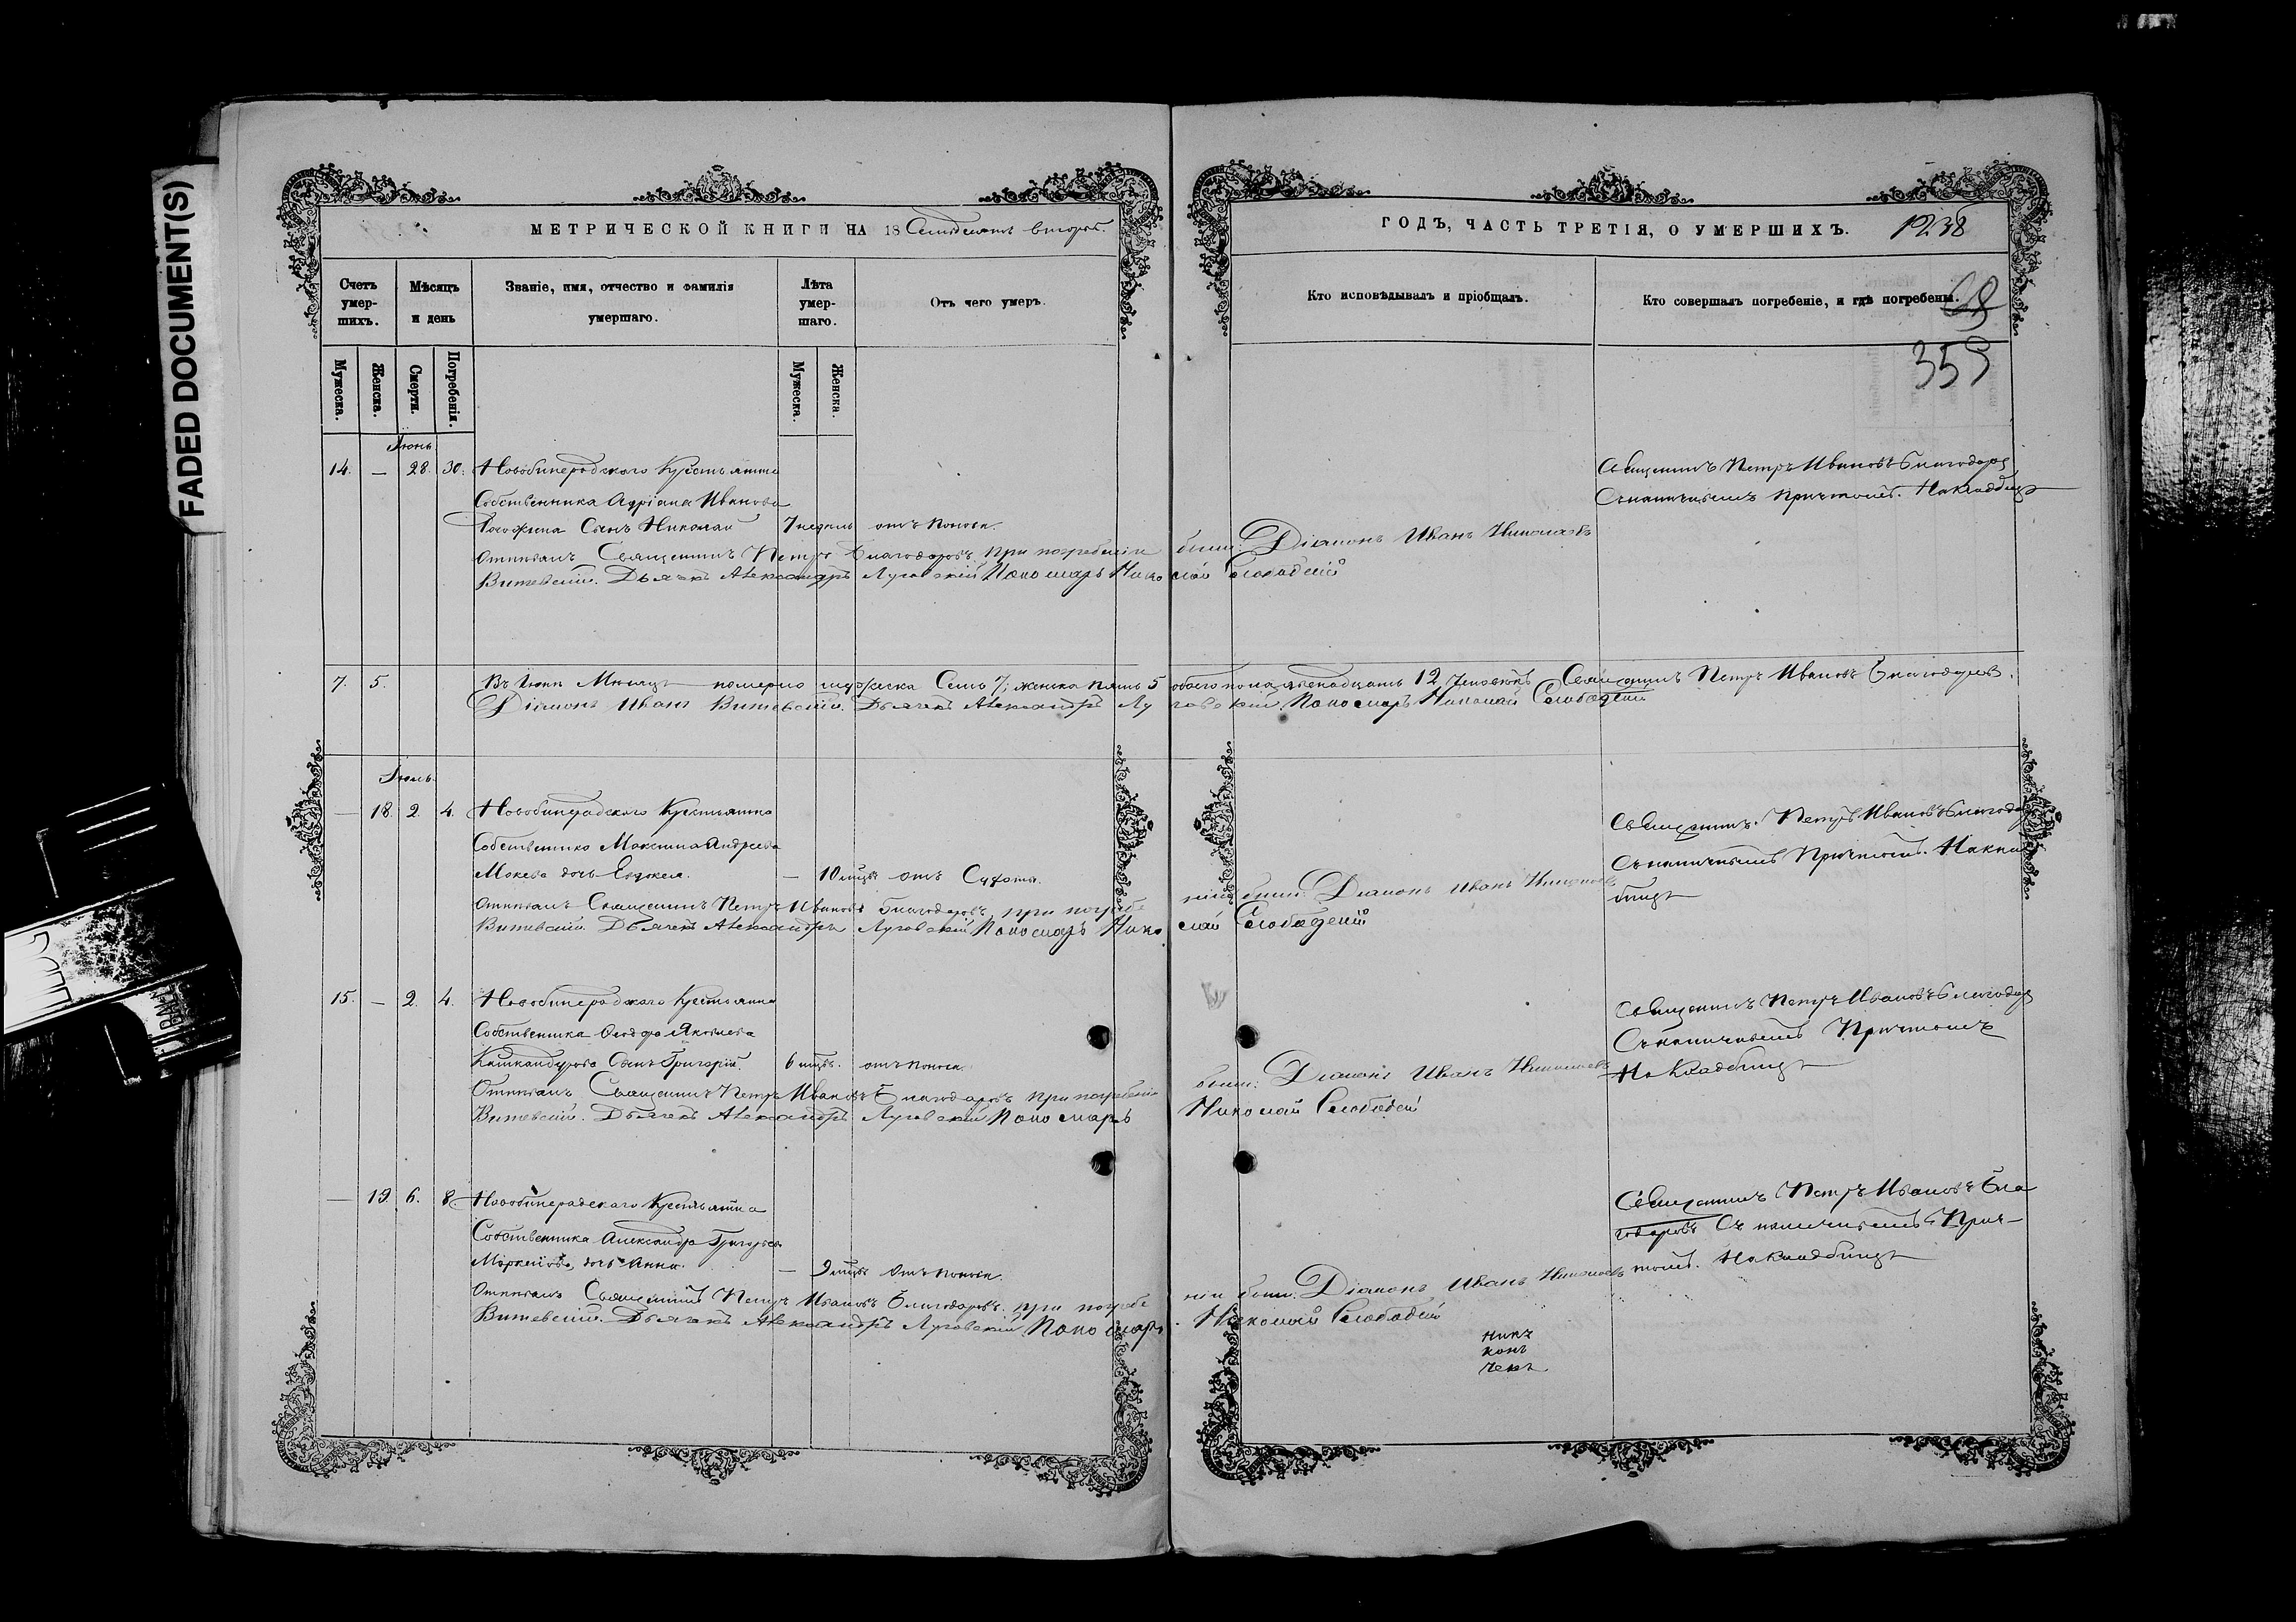 FADED DOCUMENT(S)
МЕТРИЧЕСКОЙ КНИГИ НА 18 Семьдесятъ второй
ГОДЪ, ЧАСТЬ ТРЕТІЯ, О УМЕРШИХЪ. 1238
Счетъ умер-шихъ.
Мѣсяцъ и день
Званіе, имя, отчество и фамилія умершаго.
Лѣта умер-шаго.
Отъ чего умеръ.
Кто исповѣдывалъ и пріобщалъ.
Кто совершалъ погребеніе, и гдѣ погребены.
68
359
Мужеска.
Женска.
Смерти.
Погребенія.
Мужеска.
Женска.
Іюнь
14. — 28. 30. Крестьянина
Собственника Адріана Иванова
Сынъ Николай 7 недель отъ поноса.
Священникъ Петръ Ивановъ Благодаровъ
Съ причтомъ. На кладбищѣ
Отпѣвалъ Священникъ Петръ Благодаровъ, при погребеніи были: Діаконъ Иванъ Николаевъ
Витевскій. Дьячекъ Александръ Луговскій Пономарь Николай Слободскій
7. 5. Въ Іюнѣ Мѣсяцѣ померло мужеска Семь 7; женска пять 5 обоего пола двенадцать 12 человекъ Священникъ Петръ Ивановъ Благодаровъ.
Діаконъ Иванъ Витевскій. Дьячекъ Александръ Луговскій. Пономарь Николай Слободскій
Іюль
— 18. 2. 4. Крестьянина
Собственника Максима Андреева
Мокева дочь Евдокея. — 10 мцвъ отъ Сухоты.
Священникъ Петръ Ивановъ
Причтомъ. На клад
бищѣ
Отпѣвалъ Священникъ Петръ Ивановъ Благодаровъ, при погребеніи были: Діаконъ Иванъ Николаевъ
Витевскій. Дьячекъ Александръ Луговскій Пономарь Николай Слободскій
15. — 2. 4. Крестьянина
Собственника Яковлева
Сынъ Григорій. 6 мцвъ. отъ поноса.
Священникъ Петръ Ивановъ
Причтомъ
На Кладбищѣ
Отпѣвалъ Священникъ Петръ Ивановъ Благодаровъ при погребеніи были: Діаконъ Иванъ Николаевъ
Витевскій. Дьячекъ Александръ Луговскій Пономарь Николай Слободскій
— 19. 6. 8. Крестьянина
Собственника Александра Григорьева
дочь Анна. — 9 мцвъ Отъ поноса.
Священникъ Петръ Ивановъ Бла
годаровъ Съ Прич-
томъ. На Кладбищѣ
Отпѣвалъ Священникъ Петръ Ивановъ Благодаровъ. при погребеніи были: Діаконъ Иванъ Николаевъ
Витевскій. Дьячекъ Александръ Луговскій Пономарь Николай Слободскій